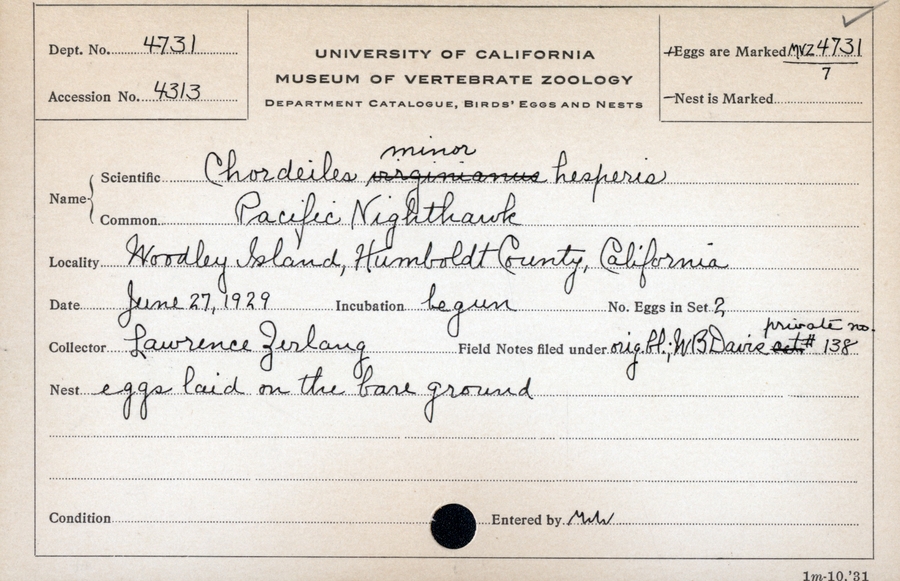 Dept. No. 4731
Accession No. 4313
UNIVERSITY OF CALIFORNIA
MUSEUM OF VERTEBRATE ZOOLOGY
DEPARTMENT CATALOGUE, BIRDS' EGGS AND NESTS
+Eggs are Marked MVZ 4731
7
—Nest is Marked
minor
Name Scientific Chordeiles virginianus hesperis
Common Pacific Nighthawk
Locality Woodley Island, Humboldt County, California
Date June 27, 1929 Incubation begun No. Eggs in Set 2
private no.
Collector Lawrence Zerlang Field Notes filed under orig. W B Davis set # 138
Nest eggs laid on the bare ground
Condition Entered by
1m-10,'31